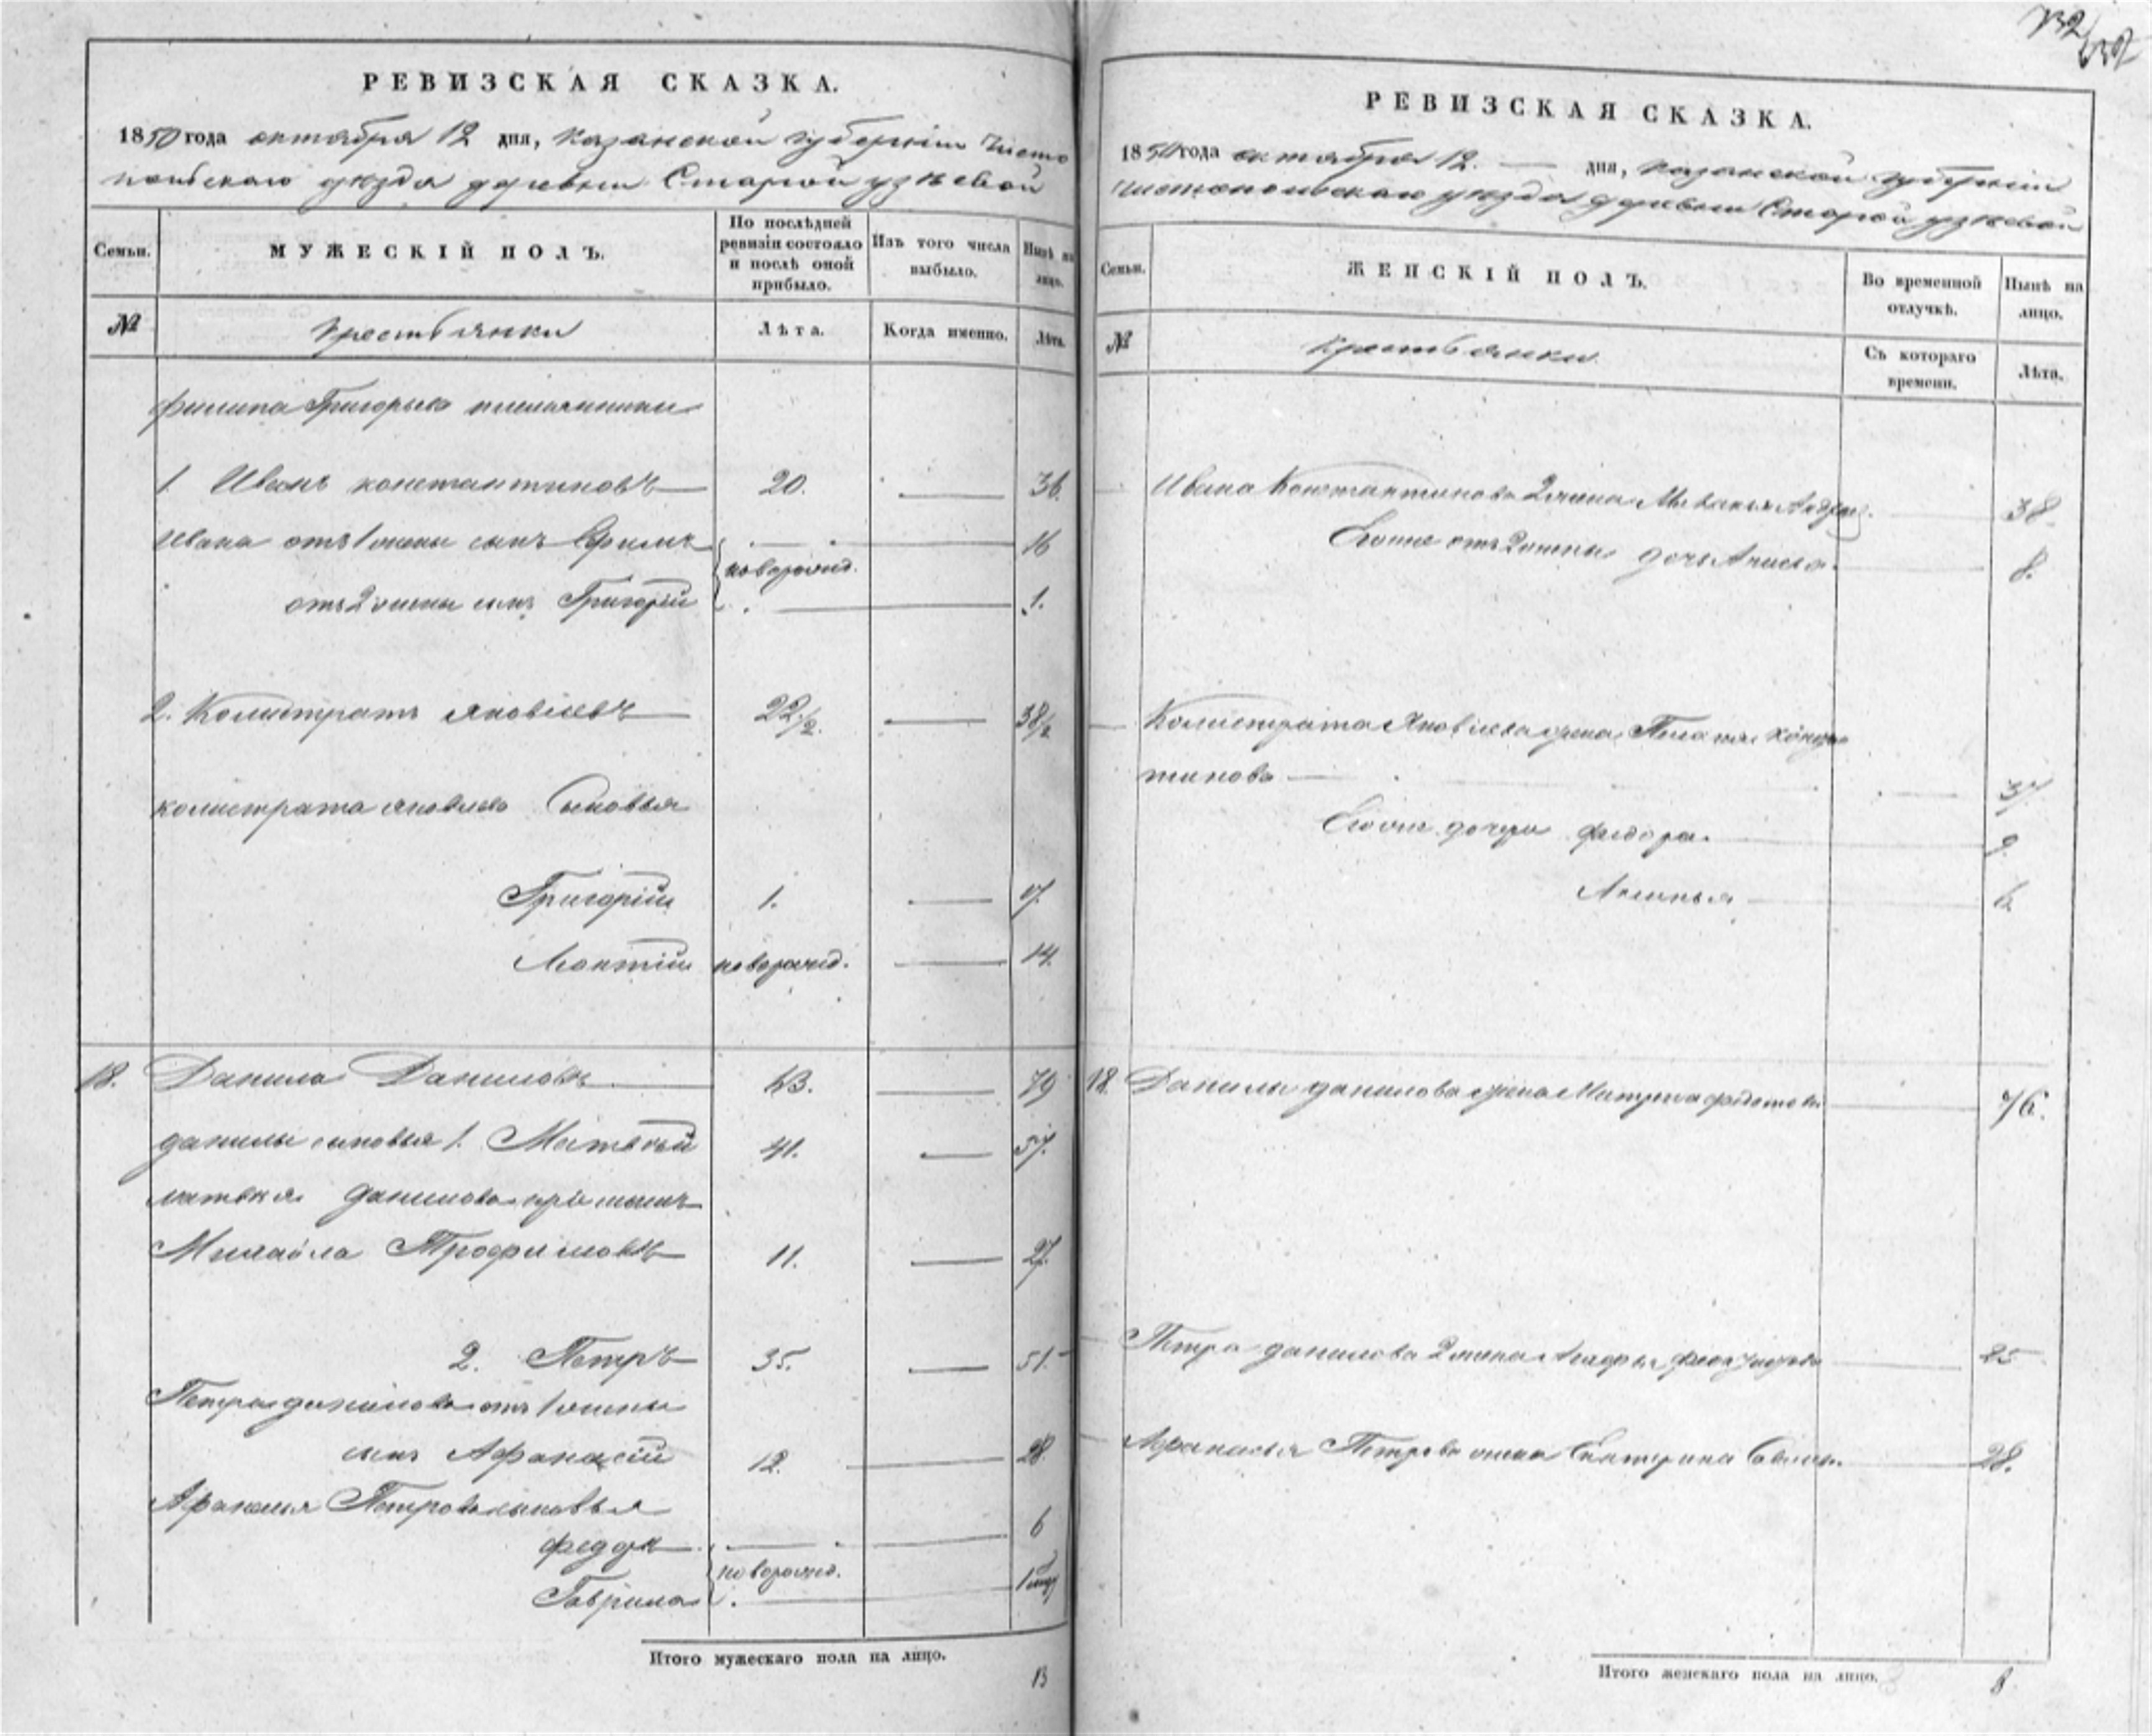 732
732
РЕВИЗСКАЯ СКАЗКА.
1850 года октября 12 дня, Казанской губерніи Чисто
польскаго уѣзда деревни Старой узѣевой
Семьи.
МУЖЕСКІЙ ПОЛЪ.
По послѣдней ревизіи состояло и послѣ оной прибыло.
Изъ того числа выбыло.
Нынѣ на лицо.
№
Крестьянки
Лѣта.
Когда именно.
Лѣта.
филипа Григорьева племянники
1 Иванъ константиновъ 20. 36.
Ивана отъ 1 жены сынъ Ефимъ 16
новорожд.
отъ 2 жены сынъ Григорій 1.
2. Колистратъ яковлевъ 22 1/2. 38 1/2
колистрата яковлева сыновья
Григорій 1. 17.
Леонтій новорожд. 14.
18. Данила Даниловъ 63. 79
данилы сыновья 1. Матвѣй 41. 57.
матвѣя данилова пріемышъ
Михайла Трофимовъ 11. 27.
2. Петръ 35. 51.
Петра данилова отъ 1 жены
сынъ Афанасій 12. 28.
Афанасья Петрова сыновья
федоръ 6
новорожд.
Гаврила 1
Итого мужескаго пола на лицо.
13
РЕВИЗСКАЯ СКАЗКА.
1850 года октября 12. дня, казанской губерніи
чистопольскаго уѣзда деревни Старой узѣевой
Семьи.
ЖЕНСКІЙ ПОЛЪ.
Во временной отлучкѣ.
Нынѣ на лицо.
№
Крестьянки.
Съ котораго времени.
Лѣта.
Ивана Константинова 2 жена Маланья Андрее. 38.
Егоже отъ 2 жены дочь Анисья. 8.
Колистрата Яковлева жена Пелагея Констан
тинова 37
Егоже дочери федора. 9
Аксинья 6
18. Данилы данилова жена Матрена федотова 76.
Петра данилова 2 жена 25
Афанасья Петрова жена Екатерина Савельи. 28.
Итого женскаго пола на лицо.
8